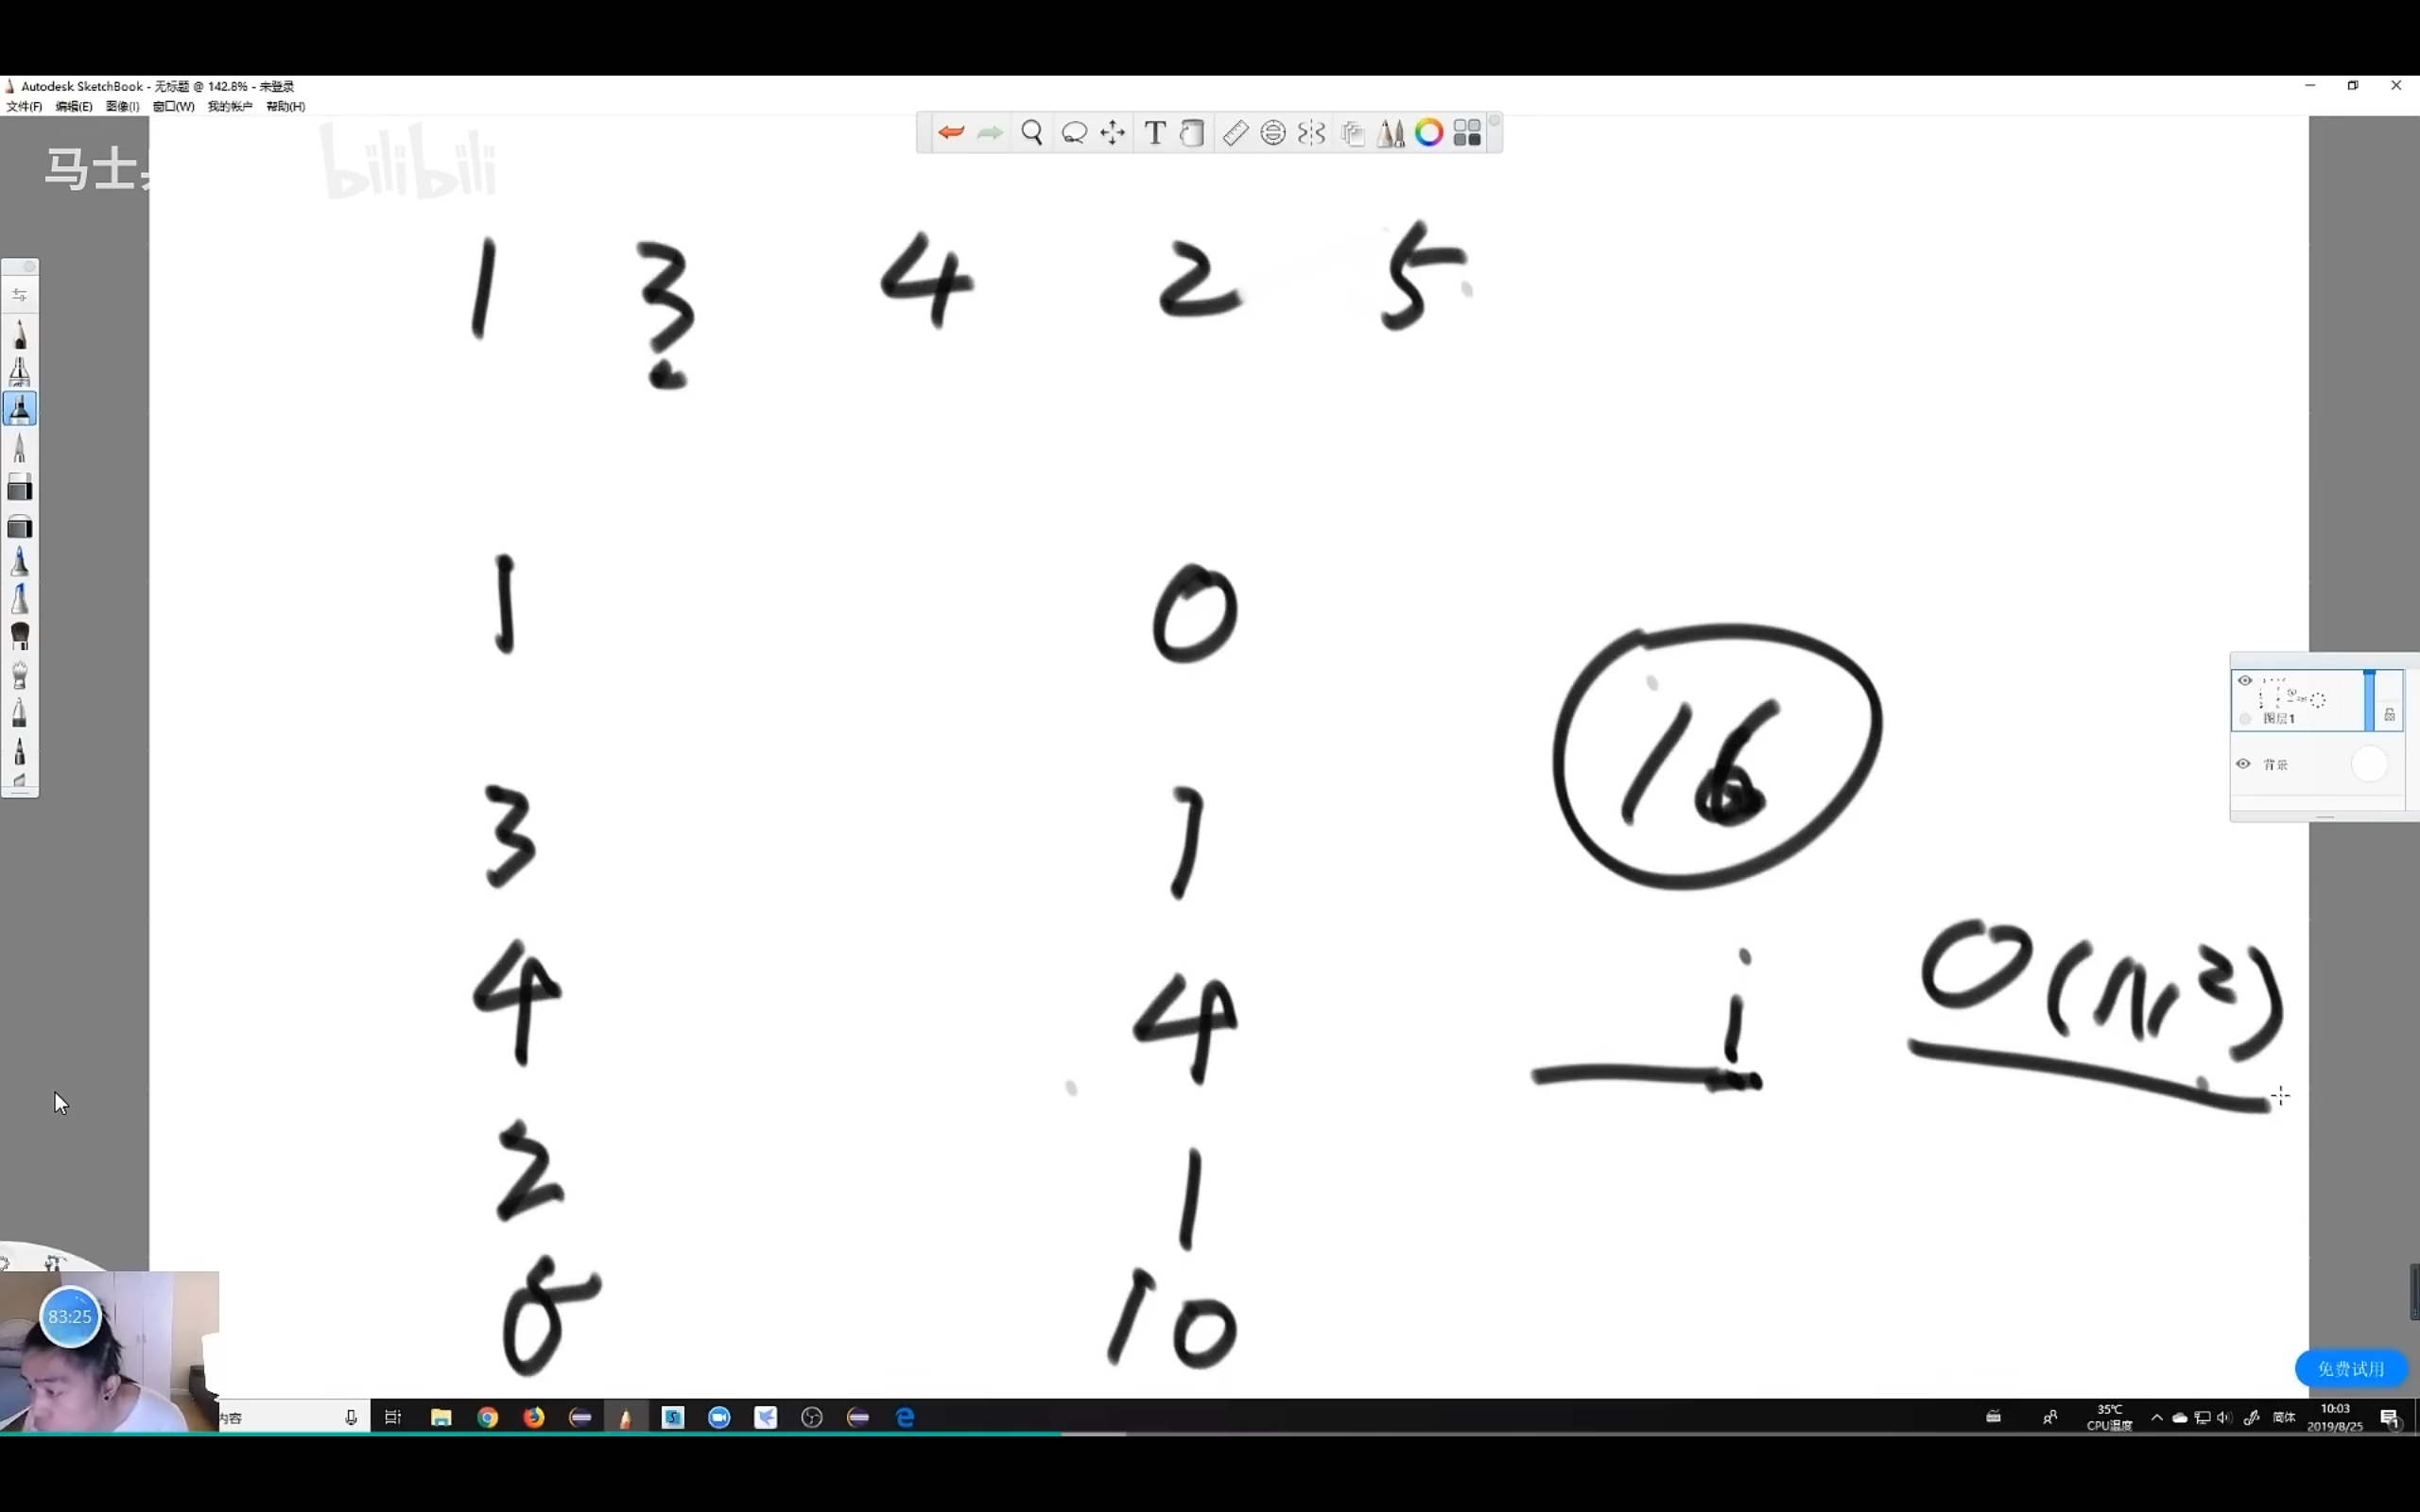 Autodesk SketchBook - 无标题 @ 142.8% - 未登录
文件(F) 编辑(E) 图像(I) 窗口(W) 我的帐户 帮助(H)
马士
bilibili
1 3 4 2 5
1 0
16
3 1
i O(N²)
4 4
2 1
5 10
图层1
背景
83:25
免费试用
内容
35℃
CPU温度
简体
10:03
2019/8/25
1